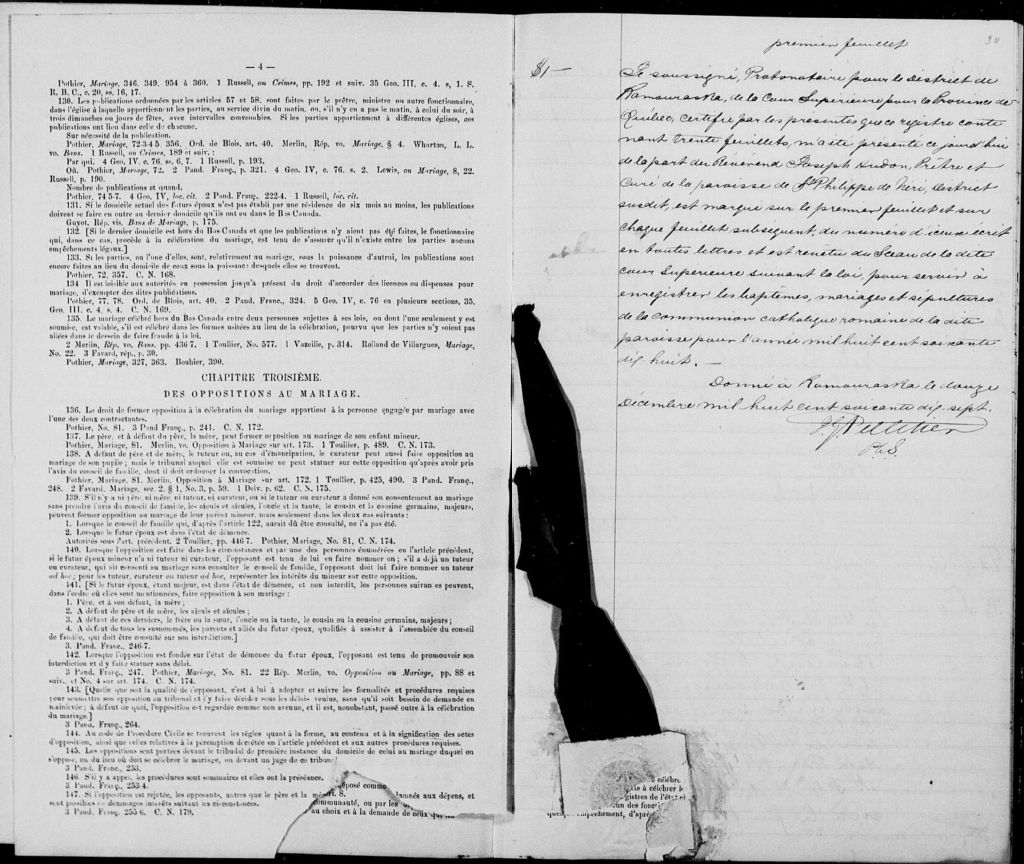 — 4 —
Pothier, Mariage, 346. 349. 954 à 360. 1 Russell, on Crimes, pp. 192 et suiv. 35 Geo. III, c. 4. s, 1. S.
R. B. C., c. 20, ss. 16, 17.
130. Les publications ordonnées par les articles 57 et 58, sont faites par le prêtre, ministre ou autre fonctionnaire,
dans l'église à laquelle appartiennent les parties, au service divin du matin, ou, s'il n'y en a pas le matin, à celui du soir, à
trois dimanches ou jours de fêtes, avec intervalles convenables. Si les parties appartiennent à différentes églises, ces
publications ont lieu dans celle de chacune.
Sur nécessité de la publication.
Pothier, Mariage, 72-3-4 5. 356. Ord. de Blois, art. 40. Merlin, Rép. vo. Mariage, § 4. Wharton, L. L.
vo. Bans. 1 Russell, on Crimes, 189 et suiv. :
Par qui. 4 Geo. IV, c. 76, ss. 6, 7. 1 Russell, p. 193.
Où. Pothier, Mariage, 72. 2 Pand. Franç., p. 321. 4 Geo. IV, c. 76. s. 2. Lewis, on Mariage, 8, 22.
Russell, p. 190.
Nombre de publications et quand.
Pothier, 74 5-7. 4 Geo, IV, loc. cit. 2 Pand. Franç., 222-4. 1 Russell, loc. cit.
131. Si le domicile actuel des futurs époux n'est pas établi par une résidence de six mois au moins, les publications
doivent se faire en outre au dernier domicile qu'ils ont eu dans le Bas Canada.
Guyot, Rép. vis. Bans de Mariage, p. 175.
132. [Si le dernier domicile est hors du Bas Canada et que les publications n'y aient pas été faites, le fonctionnaire
qui, dans ce cas, procède à la célébration du mariage, est tenu de s'assurer qu'il n'existe entre les parties aucuns
empêchements légaux.]
133. Si les parties, ou l'une d'elles, sont, relativement au mariage, sous la puissance d'autrui, les publications sont
encore faites au lieu du domicile de ceux sous la puissance desquels elles se trouvent.
Pothier, 72, 357. C. N. 168.
134 Il est loisible aux autorités en possession jusqu'à présent du droit d'accorder des licences ou dispenses pour
mariage, d'exempter des dites publications.
Pothier, 77, 78. Ord. de Blois, art. 40. 2 Pand. Franc., 324. 5 Geo. IV, c. 76 en plusieurs sections, 35,
Geo. III, c. 4. s. 4. C. N. 169.
135. Le mariage célébré hors du Bas Canada entre deux personnes sujettes à ses lois, ou dont l'une seulement y est
soumise, est valable, s'il est célébré dans les formes usitées au lieu de la célébration, pourvu que les parties n'y soient pas
allées dans le dessein de faire fraude à la loi.
2 Merlin, Rép. vo. Bans. pp. 436 7. 1 Toullier, No. 577. 1 Vazeille, p. 314. Rolland de Villargues, Mariage,
No. 22. 3 Favard, rép., p. 30.
Pothier, Mariage, 327, 363. Bouhier, 390.
CHAPITRE TROISIÈME.
DES OPPOSITIONS AU MARIAGE.
136. Le droit de former opposition à la célébration du mariage appartient à la personne engagée par mariage avec
l'une des deux contractantes.
Pothier, No. 81. 3 Pand Franç., p. 241. C. N. 172.
137. Le père, et à défaut du père, la mère, peut former opposition au mariage de son enfant mineur.
Pothier, Mariage, 81. Merlin, vo. Opposition à Mariage sur art. 173. 1 Toullier, p. 489. C. N. 173.
138. A défaut de père et de mère, le tuteur ou, au cas d'émancipation, le curateur peut aussi faire opposition au
mariage de son pupille ; mais le tribunal auquel elle est soumise ne peut statuer sur cette opposition qu'après avoir pris
l'avis du conseil de famille, dont il doit ordonner la convocation.
Pothier, Mariage, 81. Merlin, Opposition à Mariage sur art. 172. 1 Toullier, p. 425, 490. 3 Pand. Franç.,
248. 2 Favard, Mariage, sec. 2. § 1, No. 3, p. 59. 1 Delv. p. 62. C. N. 175.
139. S'il n'y a ni père, ni mère, ni tuteur, ni curateur, ou si le tuteur ou curateur a donné son consentement au mariage
sans prendre l'avis du conseil de famille, les aïeuls et aïeules, l'oncle et la tante, le cousin et la cousine germains, majeurs,
peuvent former opposition au mariage de leur parent mineur, mais seulement dans les deux cas suivants :
1. Lorsque le conseil de famille qui, d'après l'article 122, aurait dû être consulté, ne l'a pas été.
2. Lorsque le futur époux est dans l'état de démence.
Autorités sous l'art. précédent. 2 Toullier, pp. 446 7. Pothier, Mariage, No. 81, C. N. 174.
140. Lorsque l'opposition est faite dans les circonstances et par une des personnes énumérées en l'article précédent,
si le futur époux mineur n'a ni tuteur ni curateur, l'opposant est tenu de lui en faire nommer un ; s'il a déjà un tuteur
ou curateur, qui ait consenti au mariage sans consulter le conseil de famille, l'opposant doit lui faire nommer un tuteur
ad hoc ; pour les tuteur, curateur ou tuteur ad hoc, représenter les intérêts du mineur sur cette opposition.
141. [Si le futur époux, étant majeur, est dans l'état de démence, et non interdit, les personnes suivantes peuvent,
dans l'ordre où elles sont mentionnées, faire opposition à son mariage :
1. Père, et à son défaut, la mère ;
2. A défaut de père et de mère, les aïeuls et aïeules ;
3. A défaut de ces derniers, le frère ou la sœur, l'oncle ou la tante, le cousin ou la cousine germains, majeurs ;
4. A défaut de tous les susnommés, les parents et alliés du futur époux, qualifiés à assister à l'assemblée du conseil
de famille, qui doit être consulté sur son interdiction.]
3. Pand. Franç., 246-7.
142. Lorsque l'opposition est fondée sur l'état de démence du futur époux, l'opposant est tenu de promouvoir son
interdiction et d'y faire statuer sans délai.
3 Pand. Franç., 247. Pothier, Mariage, No. 81. 22 Rép. Merlin, vo. Opposition au Mariage, pp. 88 et
suiv., et No. 4 sur art. 174. C. N. 174.
143. [Quelle que soit la qualité de l'opposant, c'est à lui à adopter et suivre les formalités et procédures requises
pour soumettre son opposition au tribunal et l'y faire décider sous les délais voulus, sans qu'il soit besoin de demande en
mainlevée ; à défaut de quoi, l'opposition est regardée comme non avenue, et il est, nonobstant, passé outre à la célébration
du mariage.]
3 Pand. Franç., 264.
144. Au code de Procédure Civile se trouvent les règles quant à la forme, au contenu et à la signification des actes
d'opposition, ainsi que celles relatives à la péremption décrétée en l'article précédent et aux autres procédures requises.
145. Les oppositions sont portées devant le tribunal de première instance du domicile de celui au mariage duquel on
s'oppose, ou du lieu où doit se célébrer le mariage, ou devant un juge de ce tribun
3 Pand. Franc., 253.
146. S'il y a appel, les procédures sont sommaires et elles ont la préséance.
3 Pand. Franç., 253-4.
147. Si l'opposition est rejetée, les opposants, autres que le père et la mè
sont passibles de dommages intérêts suivant les circonstances.
3 Pand. Franç. 255 6. C. N. 179.
éposé comm
amnés aux dépens, et
ommunauté, ou par les
au choix et à la demande de ceux
premier feuillet
$1—
Je soussigné, Protonotaire pour le District de
Kamouraska, de la Cour Supérieure pour la Province de
Québec, certifie par les présentes que ce registre conte
nant trente feuillets, m'a été présenté ce jourd'hui
de la part du Révérend Joseph Hudon, Prêtre et
Curé de la paroisse de St Philippe de Néri, District
susdit, est marqué sur le premier feuillet et sur
chaque feuillet subséquent, du numéro d'icelui écrit
en toutes lettres et est revêtu du Sceau de la dite
cour Supérieure suivant la loi, pour servir à
enregistrer les baptêmes, mariages et sépultures
de la communion catholique romaine de la dite
paroisse pour l'année mil huit cent soixante
dix huit. —
Donné à Kamouraska le douze
Décembre mil huit cent soixante dix sept.
P.C.S.
célébre
is à célébrer l
gistres de l'état
un des foncti
empêchement, d'aprè